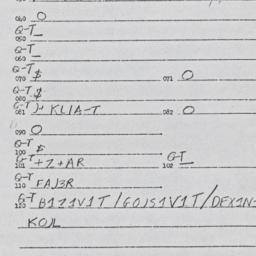 040 O
Q-T
050
Q-T
060
Q-T
070 $ 071 O
Q-T
080 $
Q-T
081 )+ KLIA-T 082 O
090 O
Q-T
100 $
Q-T Q-T
101 +Z+AR 102
Q-T
110 FAJ3R
Q-T
120 B1Z1V1T/GOJS1V1T/DFX1N-
KOJL